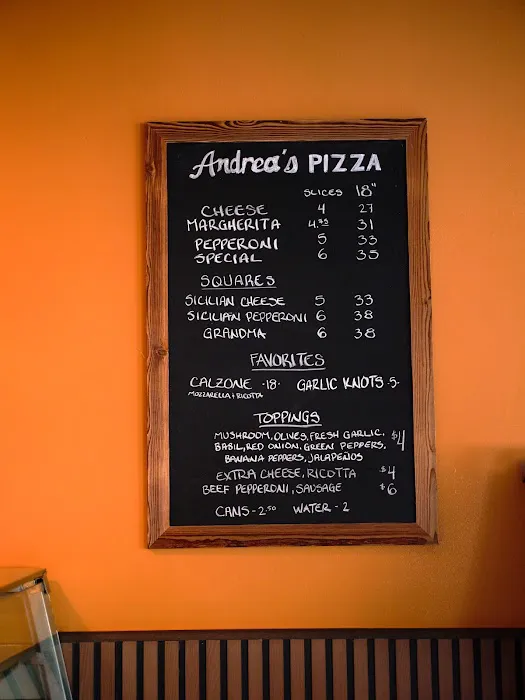 Andrea's PIZZA
SLICES 18"
CHEESE 4 27
MARGHERITA 4.75 31
PEPPERONI 5 33
SPECIAL 6 35
SQUARES
SICILIAN CHEESE 5 33
SICILIAN PEPPERONI 6 38
GRANDMA 6 38
FAVORITES
CALZONE -18- GARLIC KNOTS -5-
MOZZARELLA + RICOTTA
TOPPINGS
MUSHROOM, OLIVES, FRESH GARLIC,
BASIL, RED ONION, GREEN PEPPERS, $4
BANANA PEPPERS, JALAPEÑOS
EXTRA CHEESE, RICOTTA $4
BEEF PEPPERONI, SAUSAGE $6
CANS - 2.50 WATER - 2